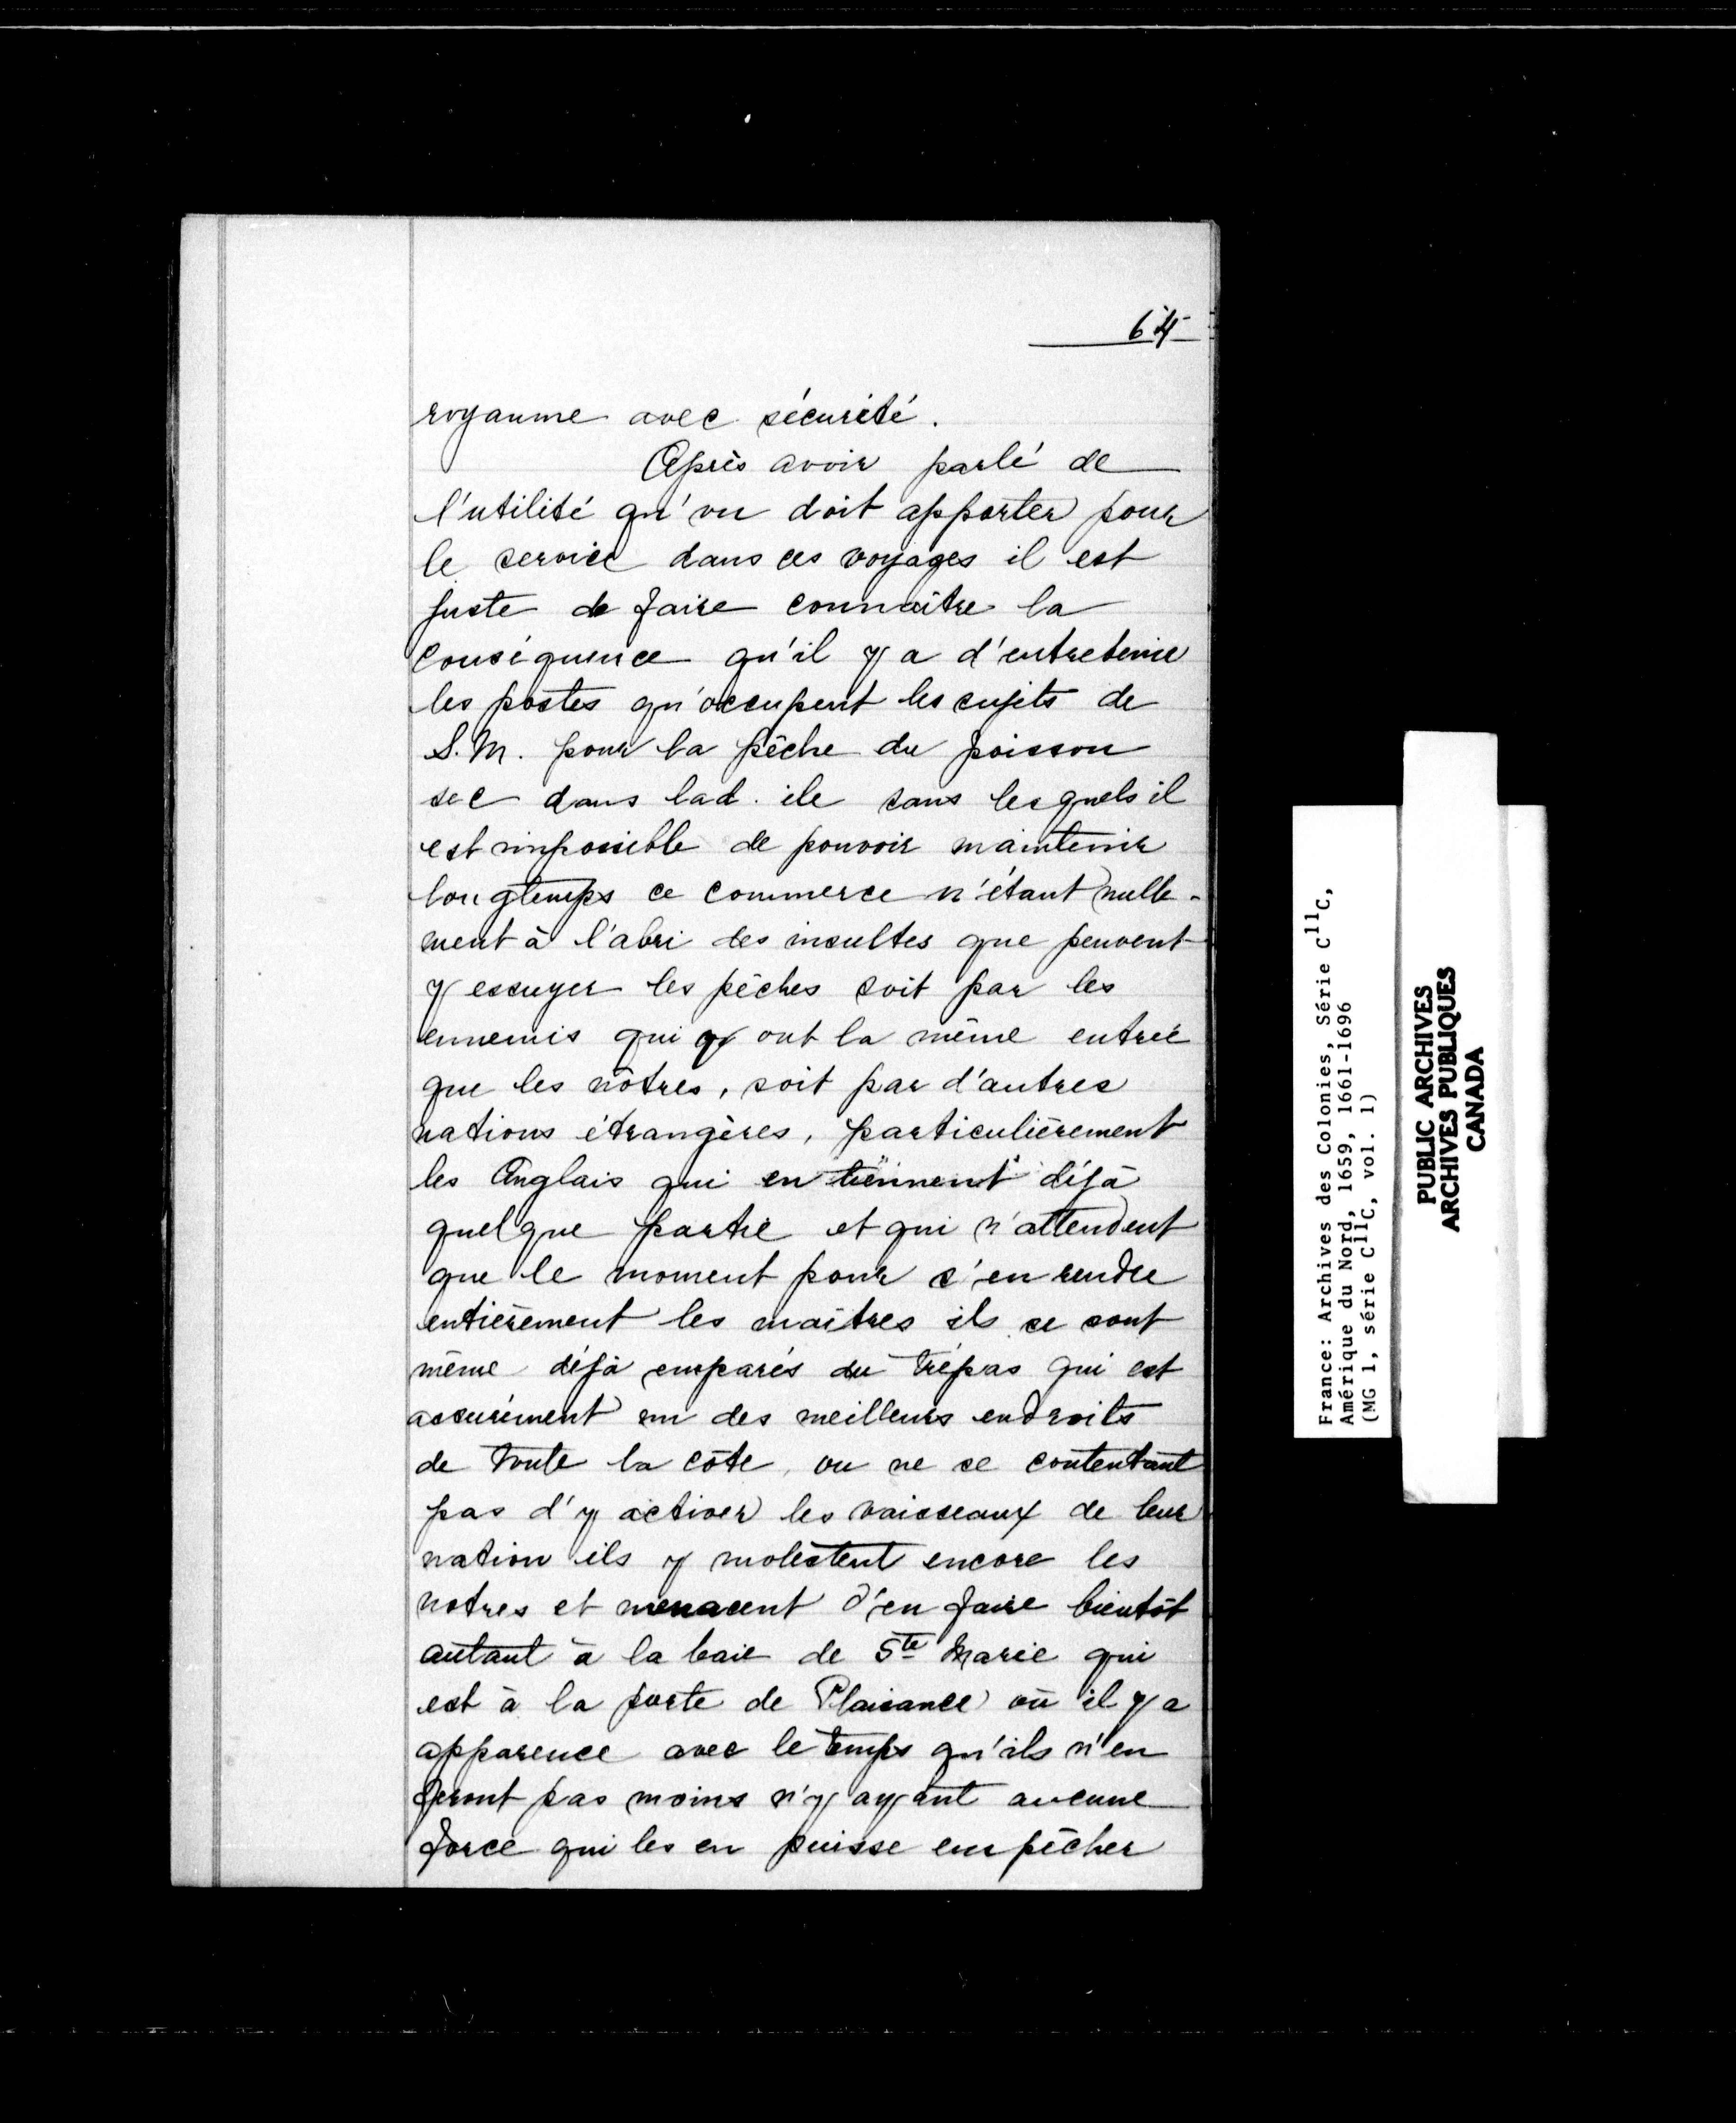 64
royaume avec sécurité.
Après avoir parlé de
l'utilité qu'on doit apporter pour
le service dans ces voyages il est
juste de faire connaître la
conséquence qu'il y a d'entretenir
les postes qu'occupent les sujets de
S.M. pour la pêche du poisson
sec dans lad. ile sans lesquels il
est impossible de pouvoir maintenir
longtemps ce commerce n'étant nulle-
ment à l'abri des insultes que peuvent
y essuyer les pêches soit par les
ennemis qui y ont la même entrée
que les nôtres, soit par d'autres
nations étrangères, particulièrement
les Anglais qui en tiennent déjà
quelque partie et qui n'attendent
que le moment pour s'en rendre
entièrement les maîtres ils se sont
même déjà emparés du trépas qui est
assurément un des meilleurs endroits
de toute la côte, ou ne se contentant
pas d'y activer les vaisseaux de leur
nation ils y molestent encore les
notres et menacent d'en faire bientôt
autant à la baie de Ste Marie qui
est à la porte de Plaisance où il y a
apparence avec le temps qu'ils n'en
feront pas moins n'y ayant aucune
force qui les en puisse empêcher
France: Archives des Colonies, Série C11C,
Amérique du Nord, 1659, 1661-1696
(MG 1, série C11C, vol. 1)
PUBLIC ARCHIVES
ARCHIVES PUBLIQUES
CANADA